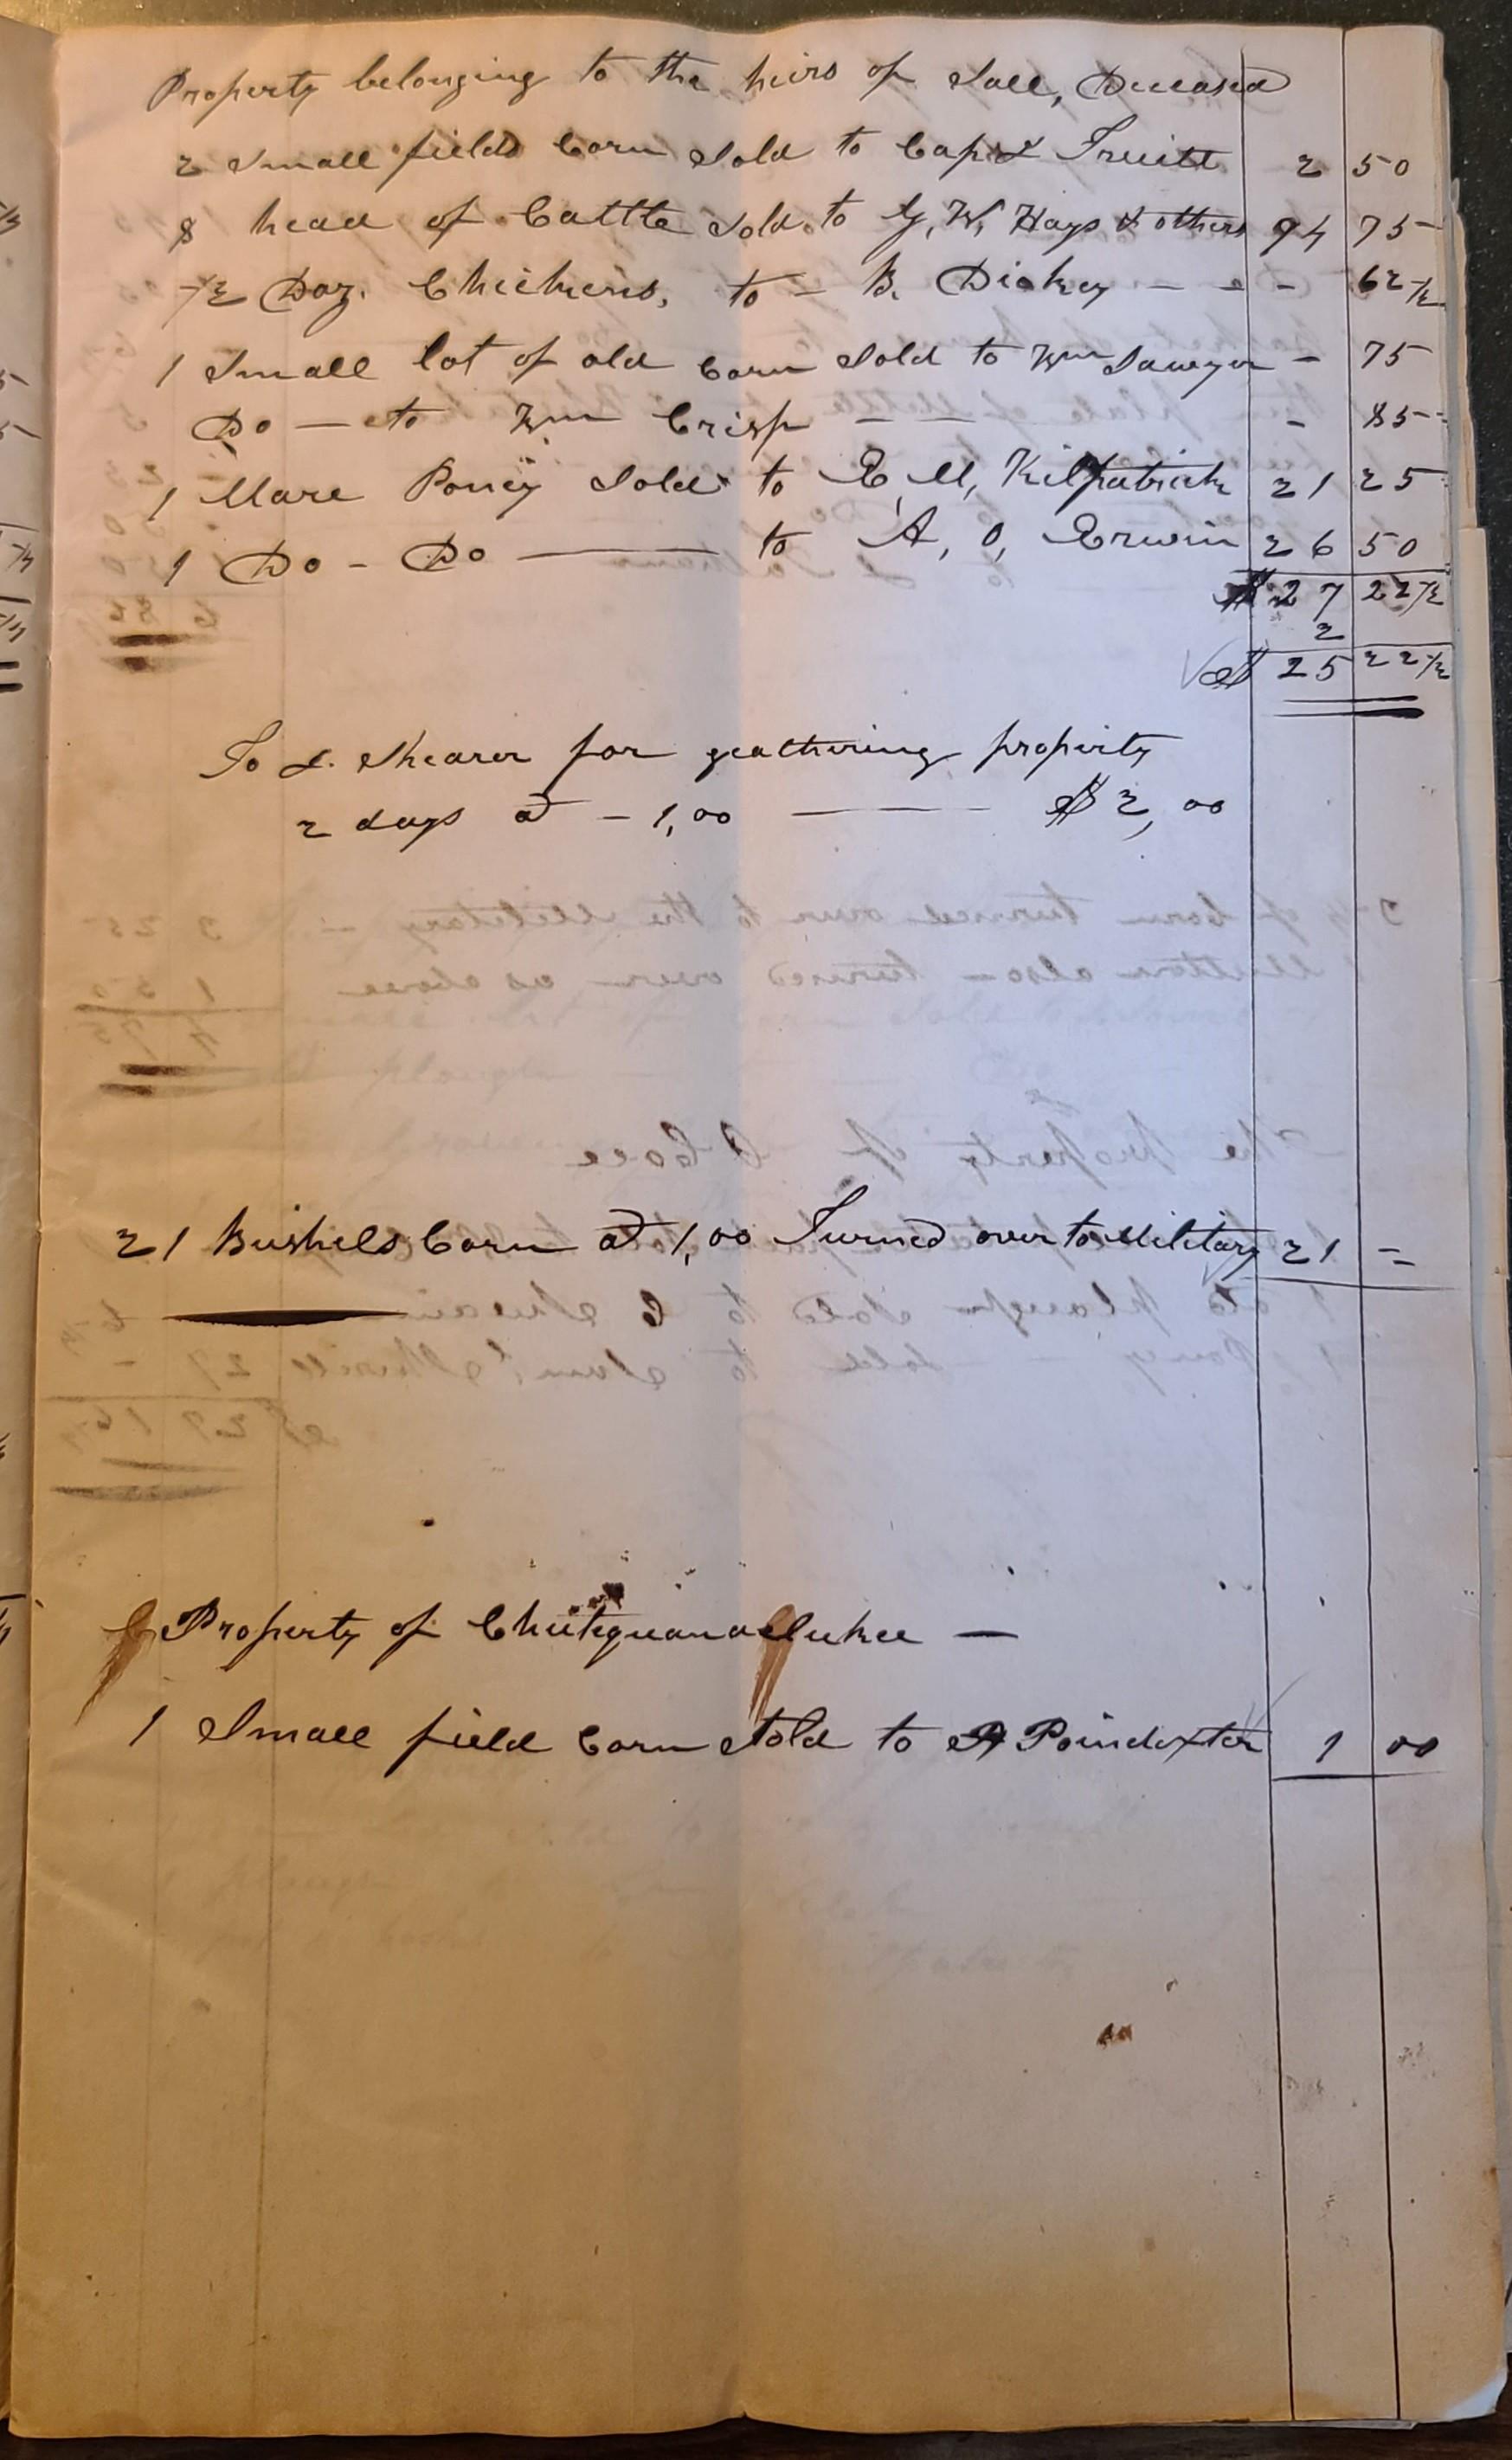 Property belonging to the heirs of Sall, Deceased
2 Small fields Corn Sold to Capt Truitt 2 50
8 head of Cattle Sold to G, W, Hays & others 94 75
1/2 Doz. Chickens, to - B. Dickey - - - 62 1/2
1 Small lot of old Corn Sold to Wm Sawyer - 75
Do - to Wm Crisp - - - 85
1 Mare Poney Sold to E, M, Kilpatrick 21 25
1 Do - Do — to A, O, Erwin 26 50
27 22 1/2
2
$ 25 22 1/2
To L. Shearer for geathering property
2 days @ - 1,00 — $ 2,00
21 Bushels Corn @ 1,00 Turned over to Military 21 =
Property of —
1 Small field Corn Sold to A Poindexter 1 00